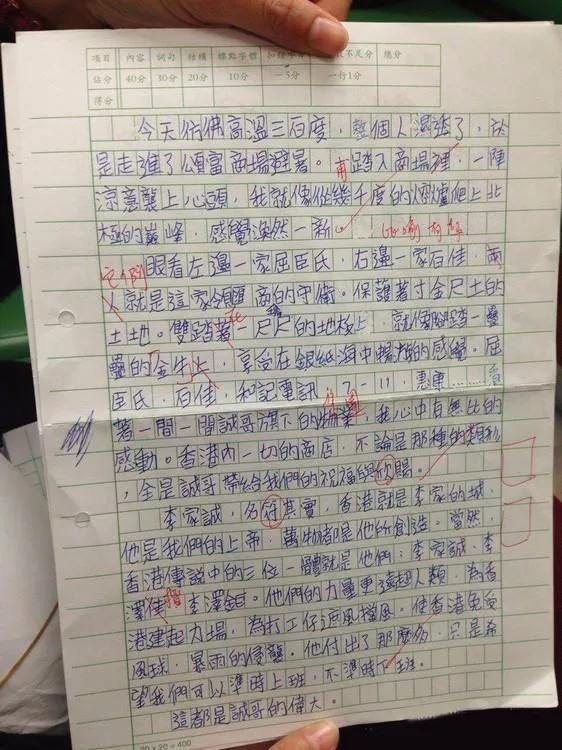 項目 內容 詞句 結構 標點字體 總分
佔分 40分 30分 20分 10分 -5分 一行1分
得分
今天彷彿高溫三百度,整個人濕透了,於
是走進了頌富商場避暑。甫踏入商場裡,一陣
涼意襲上心頭,我就像從幾千度的熔爐爬上北
極的巔峰,感覺渙然一新。
它們
眼看左邊一家屈臣氏,右邊一家百佳,兩
人就是這家領匯商的守衛。保護著寸金尺土的
土地。雙踏著一尺尺的地板上,就像腳踏一疊
疊的金牛上,享受在銀紙海中揚帆的感覺。屈
臣氏,百佳,和記電訊,7-11,惠康……看
著一間一間誠哥旗下的物業,我心中有無比的
感動。香港內一切的商店,不論是那種的類別
,全是誠哥帶給我們的祝福與欣賜。
李家誠,名符其實,香港就是李家的城,
他是我們的上帝,萬物都是他所創造。當然,
香港傳說中的三位一體就是他們:李家誠、李
澤楷、李澤鉅。他們的力量更遠超人類,為香
港建起力場,為打工仔遮風擋風。使香港免受
風球,暴雨的侵襲。他付出了那麼多,只是希
望我們可以準時上班,不準時下班。
這都是誠哥的偉大。
20×20=400